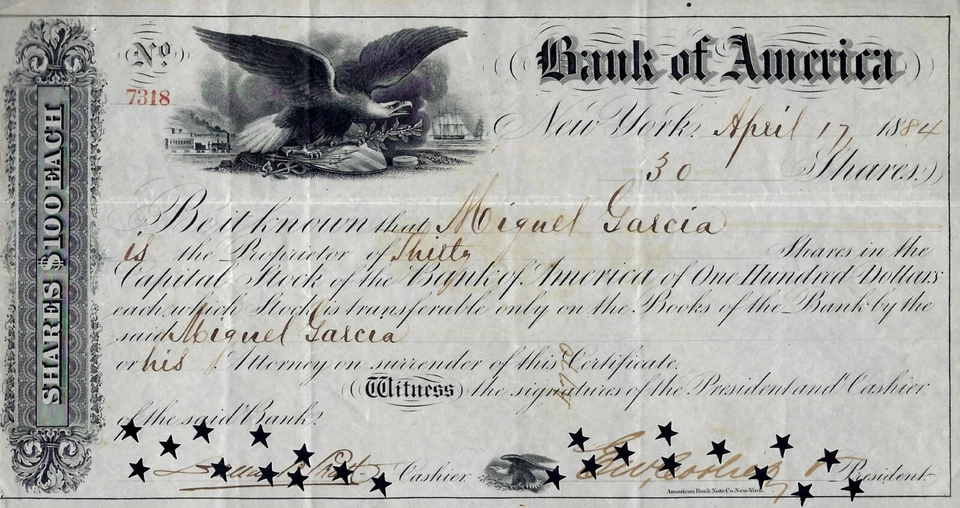 No.
7318
Bank of America
New York, April 17, 1884
30 Shares.
Be it known that Miguel Garcia
is the Proprietor of Thirty Shares in the
Capital Stock of the Bank of America of One Hundred Dollars
each, which Stock is transferable only on the Books of the Bank by the
said Miguel Garcia
or his Attorney on surrender of this Certificate.
Witness the signatures of the President and Cashier
of the said Bank.
Cashier President
American Bank Note Co. New-York.
SHARES $100 EACH